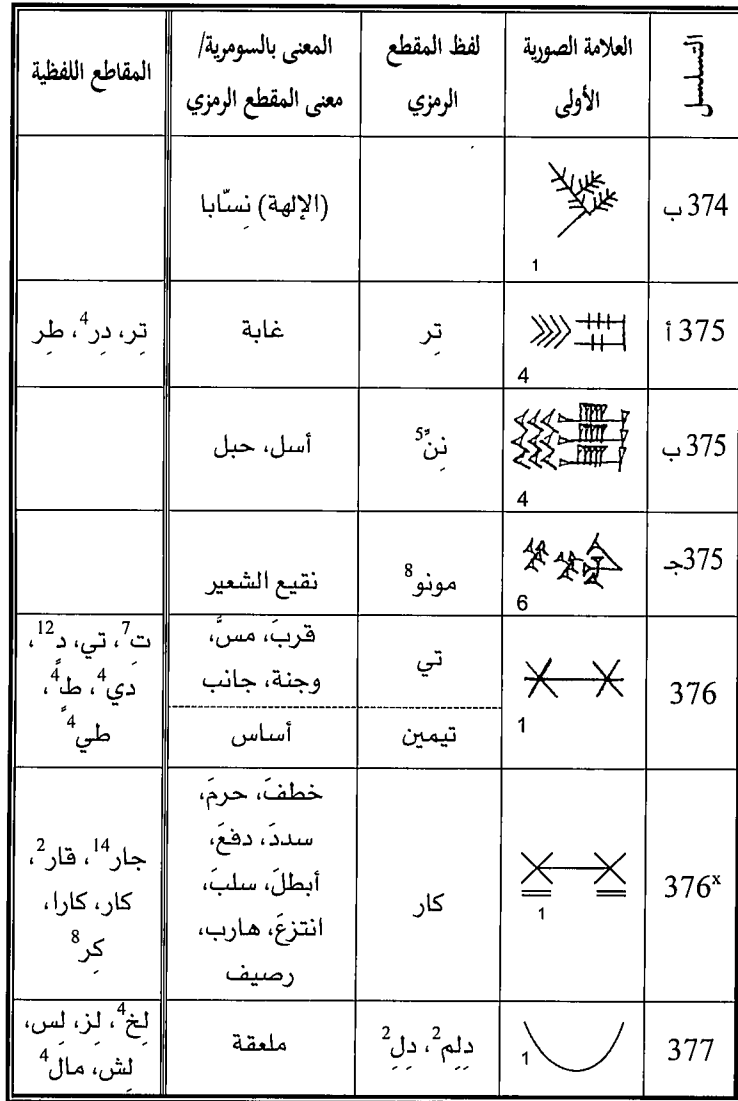 التسلسل | العلامة الصورية الأولى | لفظ المقطع الرمزي | المعنى بالسومرية/ معنى المقطع الرمزي | المقاطع اللفظية
374 ب | 1 | | (الإلهة) نِسّابا |
375 أ | 4 | تِر | غابة | تِر، دِر⁴، طِر
375 ب | 4 | نِنّ⁵ | أسل، حبل |
375جـ | 6 | مونو⁸ | نقيع الشعير |
376 | 1 | تي | قربَ، مسَّ، وجنة، جانب | ت⁷، تي، د¹²، دي⁴، ط⁴، طي⁴
تيمين | أساس
376ˣ | 1 | كار | خطفَ، حرمَ، سددَ، دفعَ، أبطلَ، سلبَ، انتزعَ، هارب، رصيف | جار¹⁴، قار²، كار، كارا، كِر⁸
377 | 1 | دِلِم²، دِلِ² | ملعقة | لِخ⁴، لِز، لِس، لِش، مال⁴